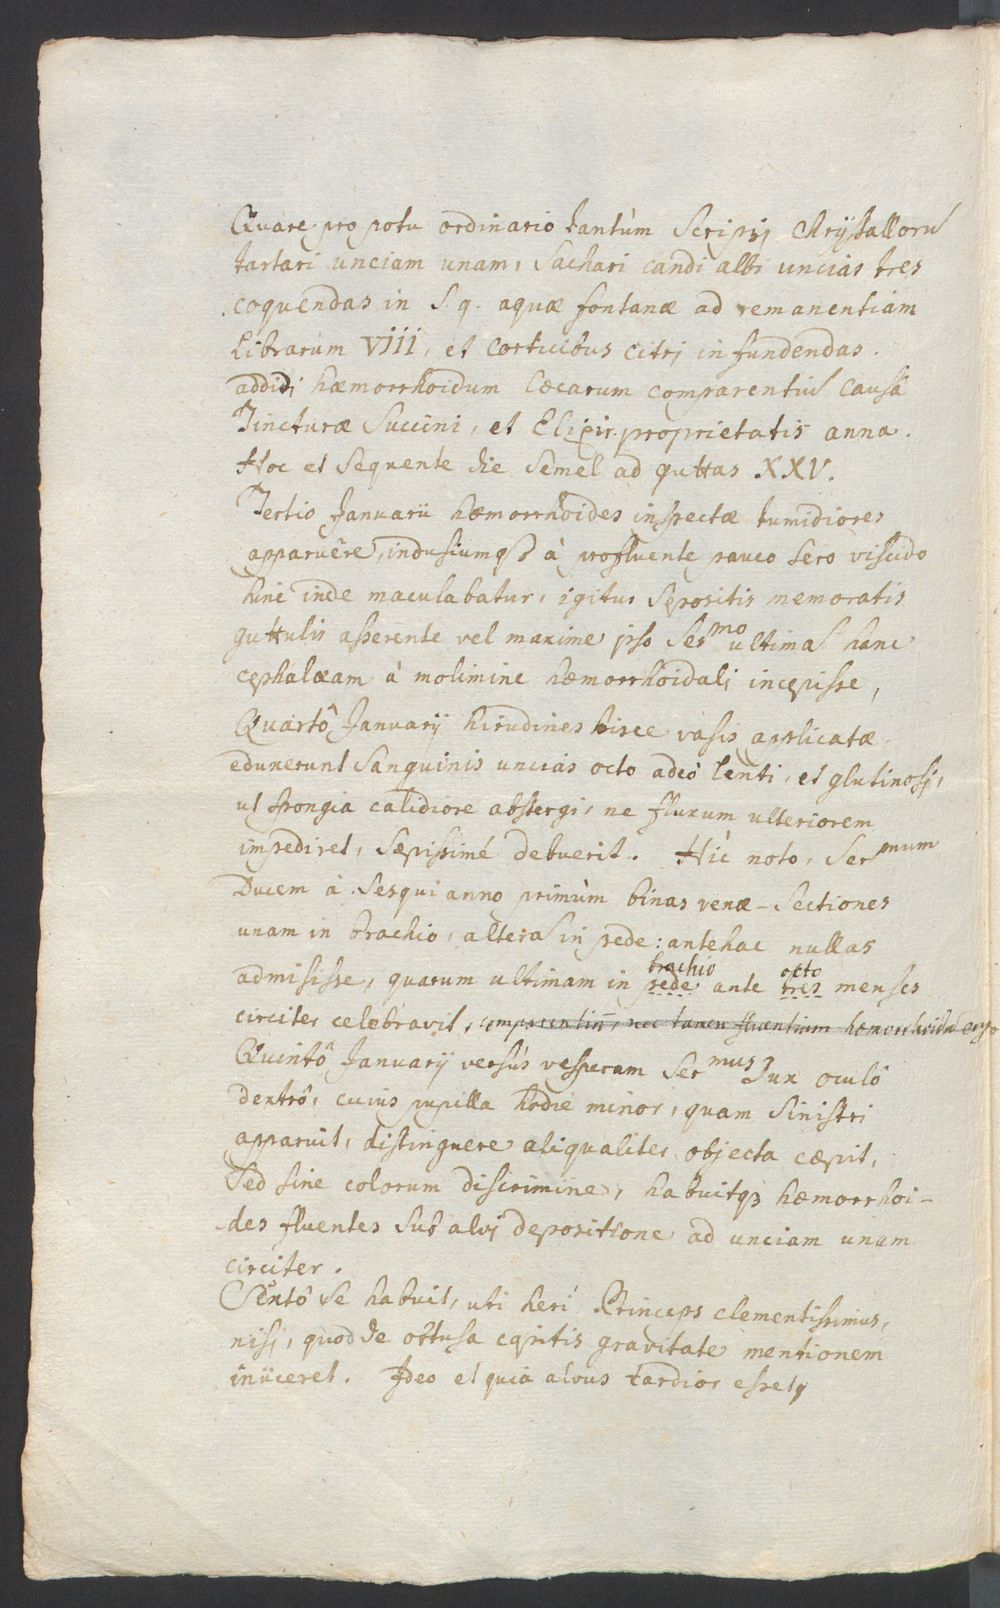 Quare pro potu ordinario tantùm scripsi Chrijstallorũ
tartari unciam unam, sachari candi albi uncias tres
coquendas in S. q. aquæ fontanæ ad remanentiam
Librarum VIII, et corticibus citrj infundendas.
addidj hæmorrhoidum cœcarum comparentiũ causâ
Tincturæ Succini, et Elixir proprietatis anna.
Hoc et sequente die semel ad guttas XXV.
Tertio Januarii hæmorrhoides inspectæ tumidiores
apparuêre, indusiumq3 à profluente pauco sero viscido
hinc inde maculabatur, igitur sepositis memoratis
guttulis asserente vel maxime ipso Ser mo ultimã hanc
cephalæam à molimine hæmorrhoidalj incepisse,
Quartô Januarij hirudines hisce vasis applicatæ
eduxerunt sanguinis uncias octo adeò lenti, et glutinosj,
ut spongia calidiore abstergi, ne fluxum ulteriorem
impediret, sæpissimé debuerit. Hic noto, Ser mum
Ducem à sesqui anno primùm binas venæ-sectiones
unam in brachio, alterã in pede: antehac nullas
brachio octo
admisisse, quarum ultimam in pede ante tres menses
circiter celebravit, comparentiũ, nec tamen fluentium hæmorrhoidũ ergo
Quintô Januarij versùs vesperam Ser mus Dux oculô
dextrô, cuius pupilla hodie minor, quam sinistri
apparuit, distinguere aliqualiter objecta cœpit,
sed sine colorum discrimine, habuitq3 hæmorrhoi-
des fluentes sub alvj depositione ad unciam unam
circiter.
Sextô se habuit, uti heri Princeps clementissimus,
nisj, quod de obtusa capitis gravitate mentionem
iniiceret. Ideo et quia alvus tardior esset,